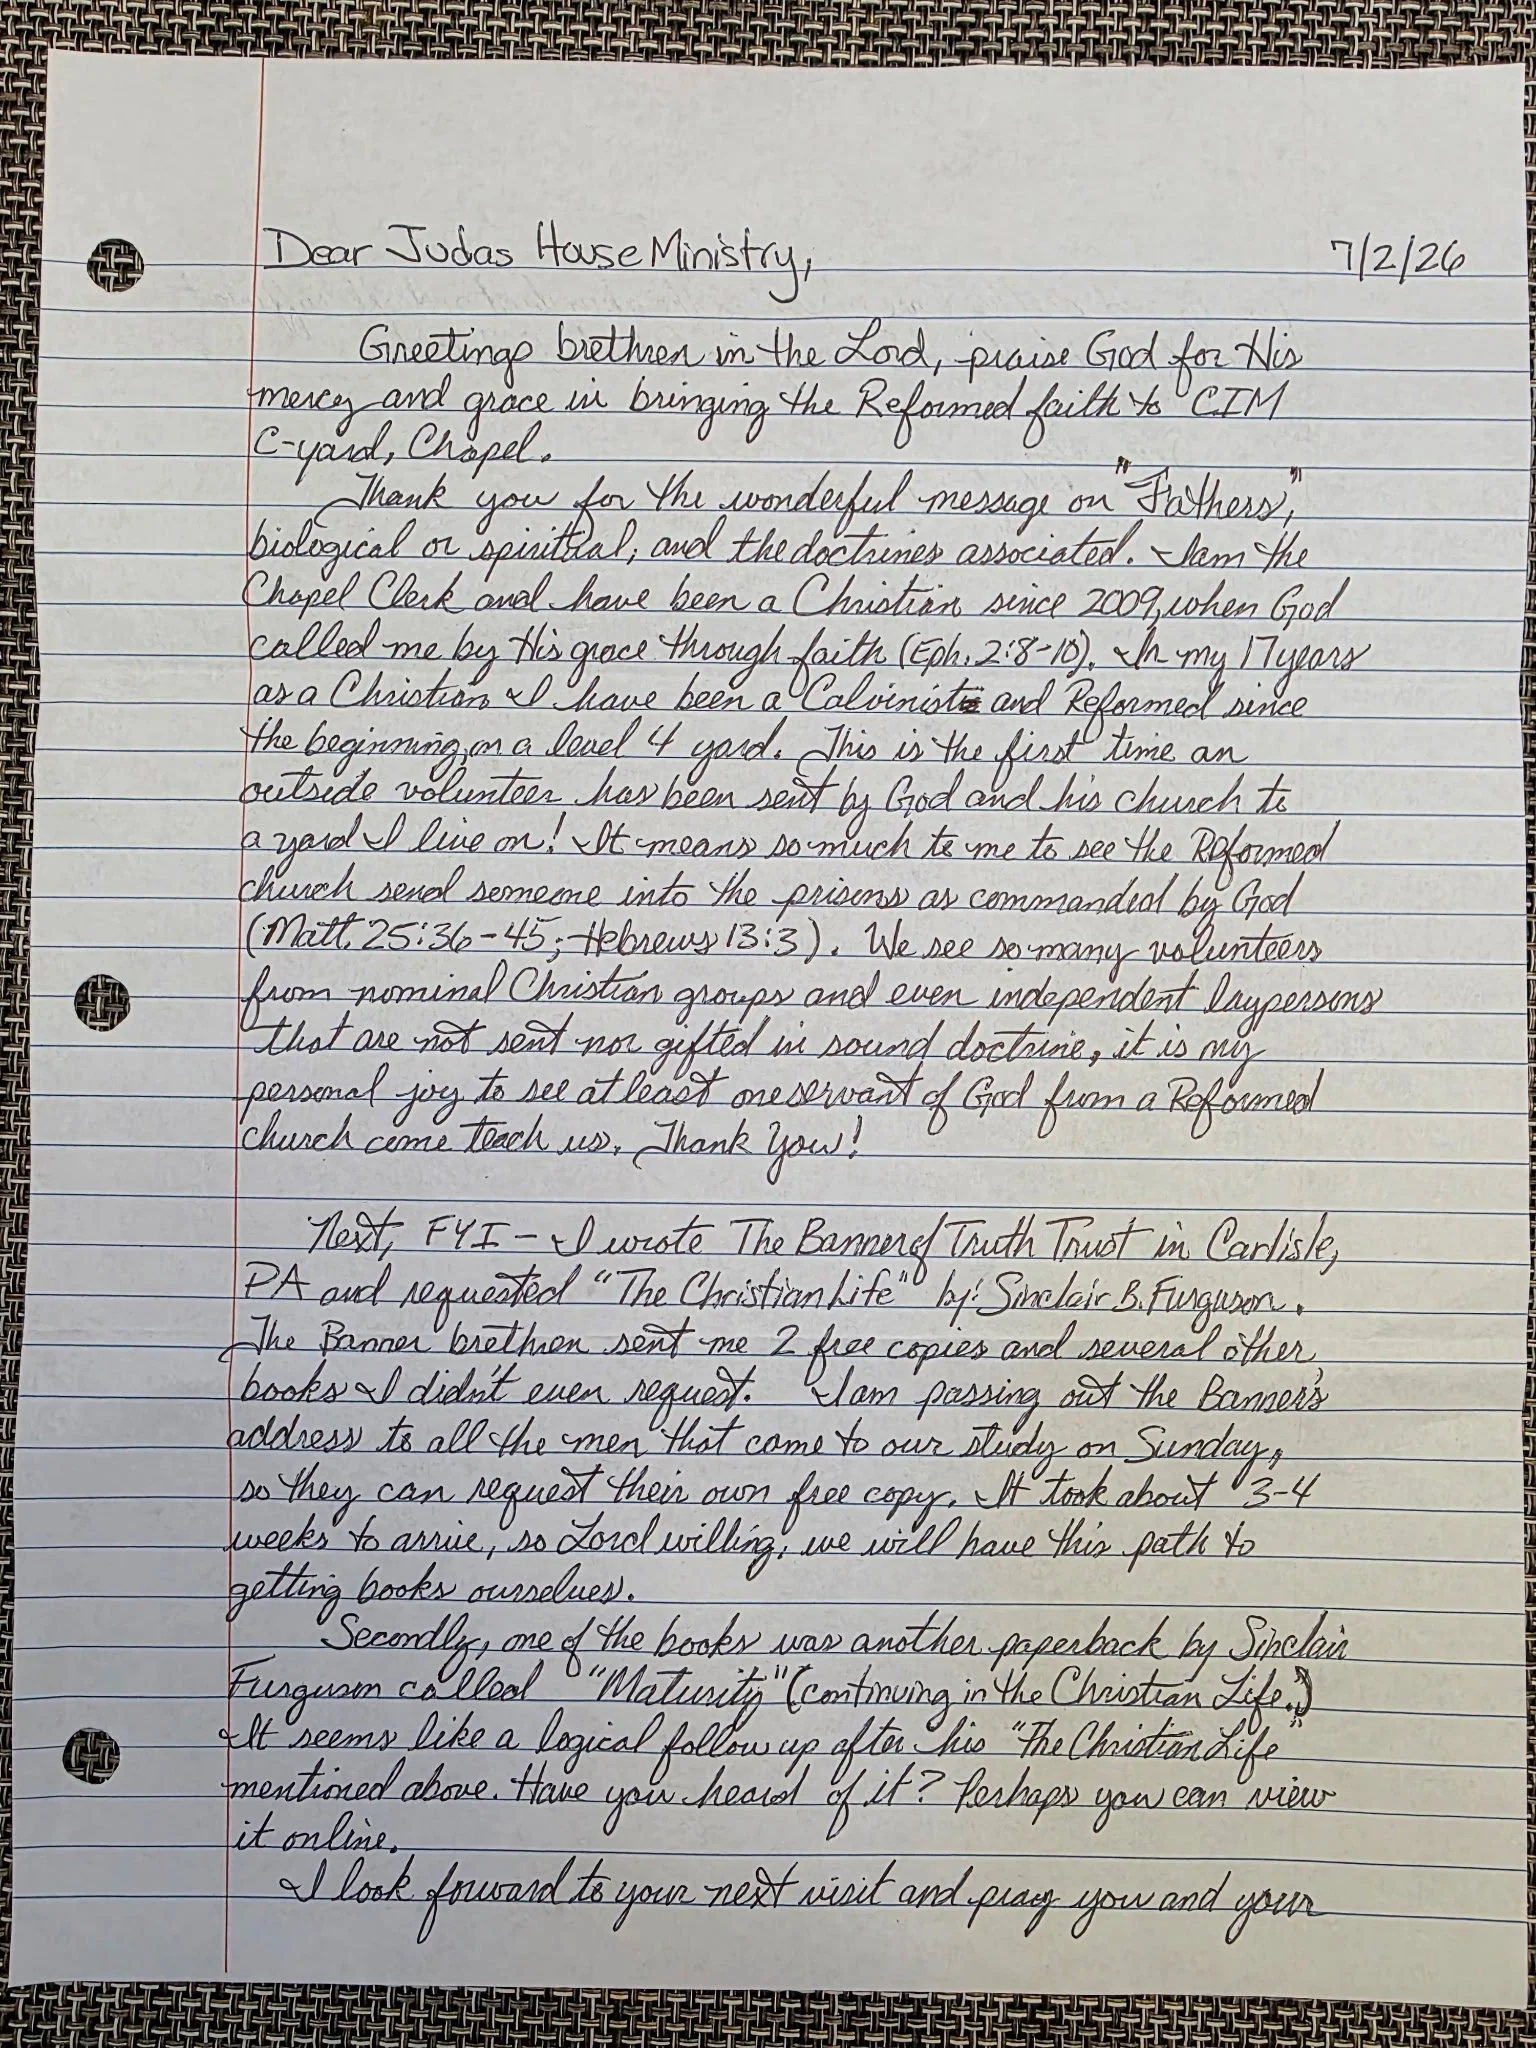 Dear Judas House Ministry, 7/2/26
Greetings brethren in the Lord, praise God for His
mercy and grace in bringing the Reformed faith to CIM
C-yard, Chapel.
Thank you for the wonderful message on "Fathers,"
biological or spiritual, and the doctrines associated. I am the
Chapel Clerk and have been a Christian since 2009, when God
called me by His grace through faith (Eph. 2:8-10). In my 17 years
as a Christian I have been a Calvinist and Reformed since
the beginning, on a level 4 yard. This is the first time an
outside volunteer has been sent by God and his church to
a yard I live on! It means so much to me to see the Reformed
church send someone into the prisons as commanded by God
(Matt. 25:36-45; Hebrews 13:3). We see so many volunteers
from nominal Christian groups and even independent laypersons
that are not sent nor gifted in sound doctrine, it is my
personal joy to see at least one servant of God from a Reformed
church come teach us. Thank You!
Next, FYI - I wrote The Banner of Truth Trust in Carlisle,
PA and requested "The Christian Life" by: Sinclair B. Furguson.
The Banner brethren sent me 2 free copies and several other
books I didn't even request. I am passing out the Banner's
address to all the men that come to our study on Sunday,
so they can request their own free copy. It took about 3-4
weeks to arrive, so Lord willing, we will have this path to
getting books ourselves.
Secondly, one of the books was another paperback by Sinclair
Furguson called "Maturity" (continuing in the Christian Life.)
It seems like a logical follow up after his "The Christian Life"
mentioned above. Have you heard of it? Perhaps you can view
it online.
I look forward to your next visit and pray you and your